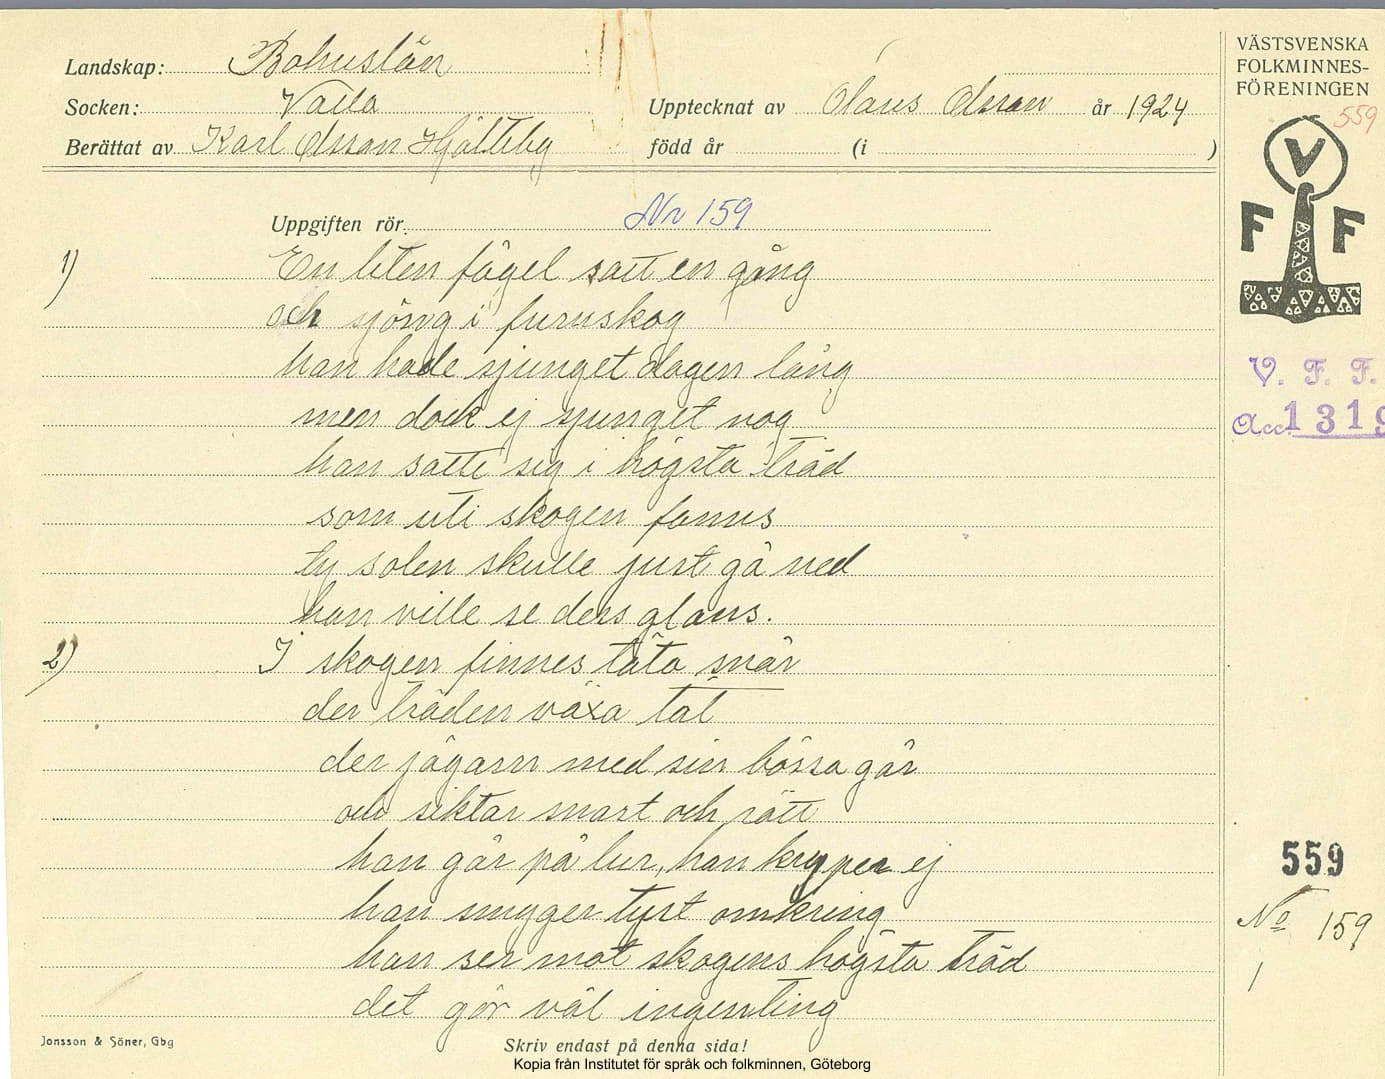 Landskap: Bohuslän
Socken: Valla
Berättat av Karl Olsson Hjälteby
Upptecknat av Olaus Olsson år 1924
född år (i )
VÄSTSVENSKA
FOLKMINNES-
FÖRENINGEN
559
V
F F
V. F. F.
Acc. 1319
Uppgiften rör Nr 159
1) En liten fågel satt en gång
och sjöng i furuskog
han hade sjunget dagen lång
men dock ej sjunget nog
han satte sig i högsta träd
som uti skogen fanns
ty solen skulle just gå ned
han ville se ders glans.
2) I skogen finnes täta snår
der träden växa tät
der jägarn med sin bössa går
och siktar snart och rätt
han går på lur, han kryper ej
han smyger tyst omkring
han ser mot skogens högsta träd
det gör väl ingenting
559
No 159
1
Jonsson & Söner, Gbg
Skriv endast på denna sida!
Kopia från Institutet för språk och folkminnen, Göteborg